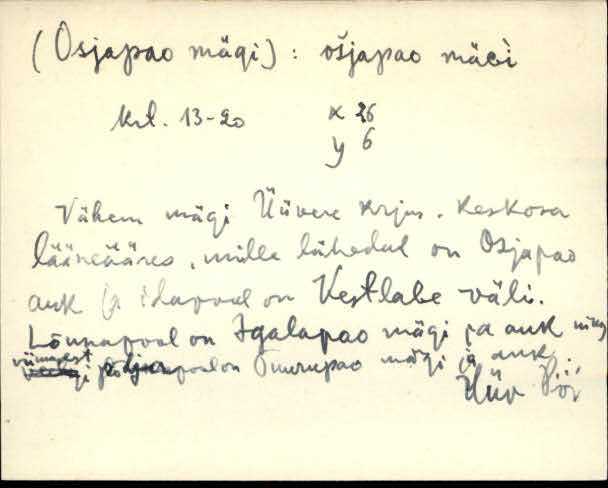 (Osjapao mägi) : ošjapao mäɢì
krt. 13-20 x 26
y 6
Vähem mägi Üüvere krjus. Keskosa
lääneääres, mille lähedal on Osjapao
auk ja idapool on Vestlabe väli.
Lõunapool on Igalapao mägi ja auk ning
viimasest põhjapool on Tuurupao mägi ja auk.
Hüü Pöi